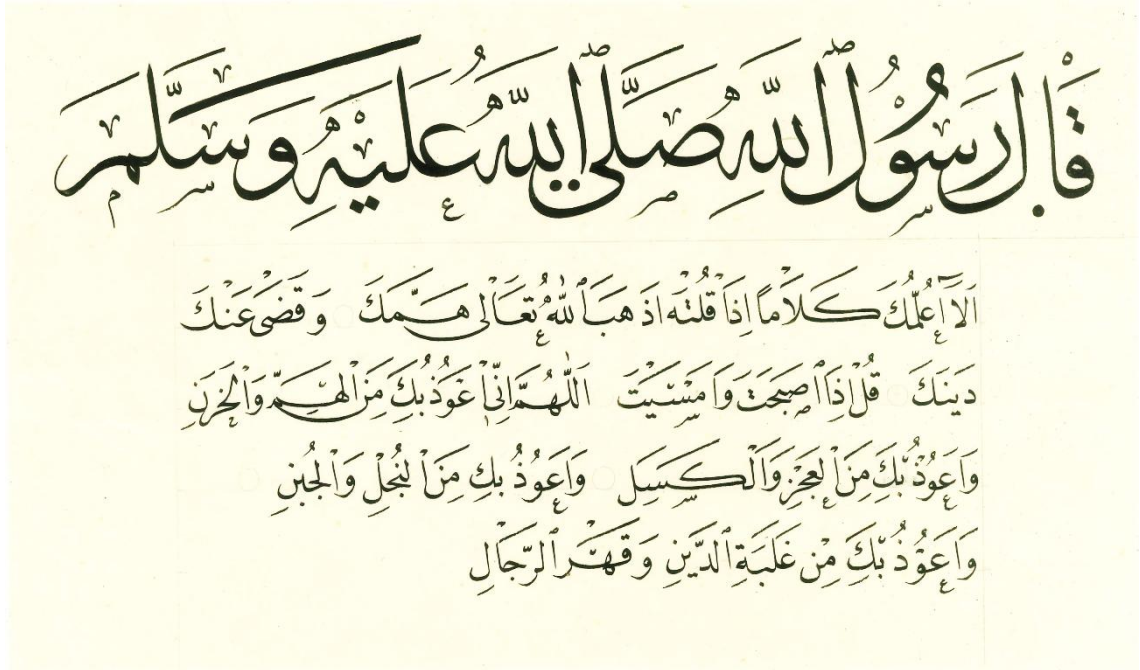 قَالَ رَسُولُ ٱللهِ صَلَّى ٱللهُ عَلَيْهِ وَسَلَّمَ
اَلَا اُعَلِّمُكَ كَلَامًا اِذَا قُلْتَهُ اَذْهَبَ ٱللهُ تَعَالٰى هَمَّكَ وَقَضٰى عَنْكَ
دَيْنَكَ قُلْ اِذَا اَصْبَحْتَ وَاَمْسَيْتَ اَللّٰهُمَّ اِنِّى اَعُوذُ بِكَ مِنَ الْهَمِّ وَالْحَزَنِ
وَاَعُوذُ بِكَ مِنَ الْعَجْزِ وَالْكَسَلِ وَاَعُوذُ بِكَ مِنَ الْبُخْلِ وَالْجُبْنِ
وَاَعُوذُ بِكَ مِنْ غَلَبَةِ ٱلدَّيْنِ وَقَهْرِ ٱلرِّجَالِ